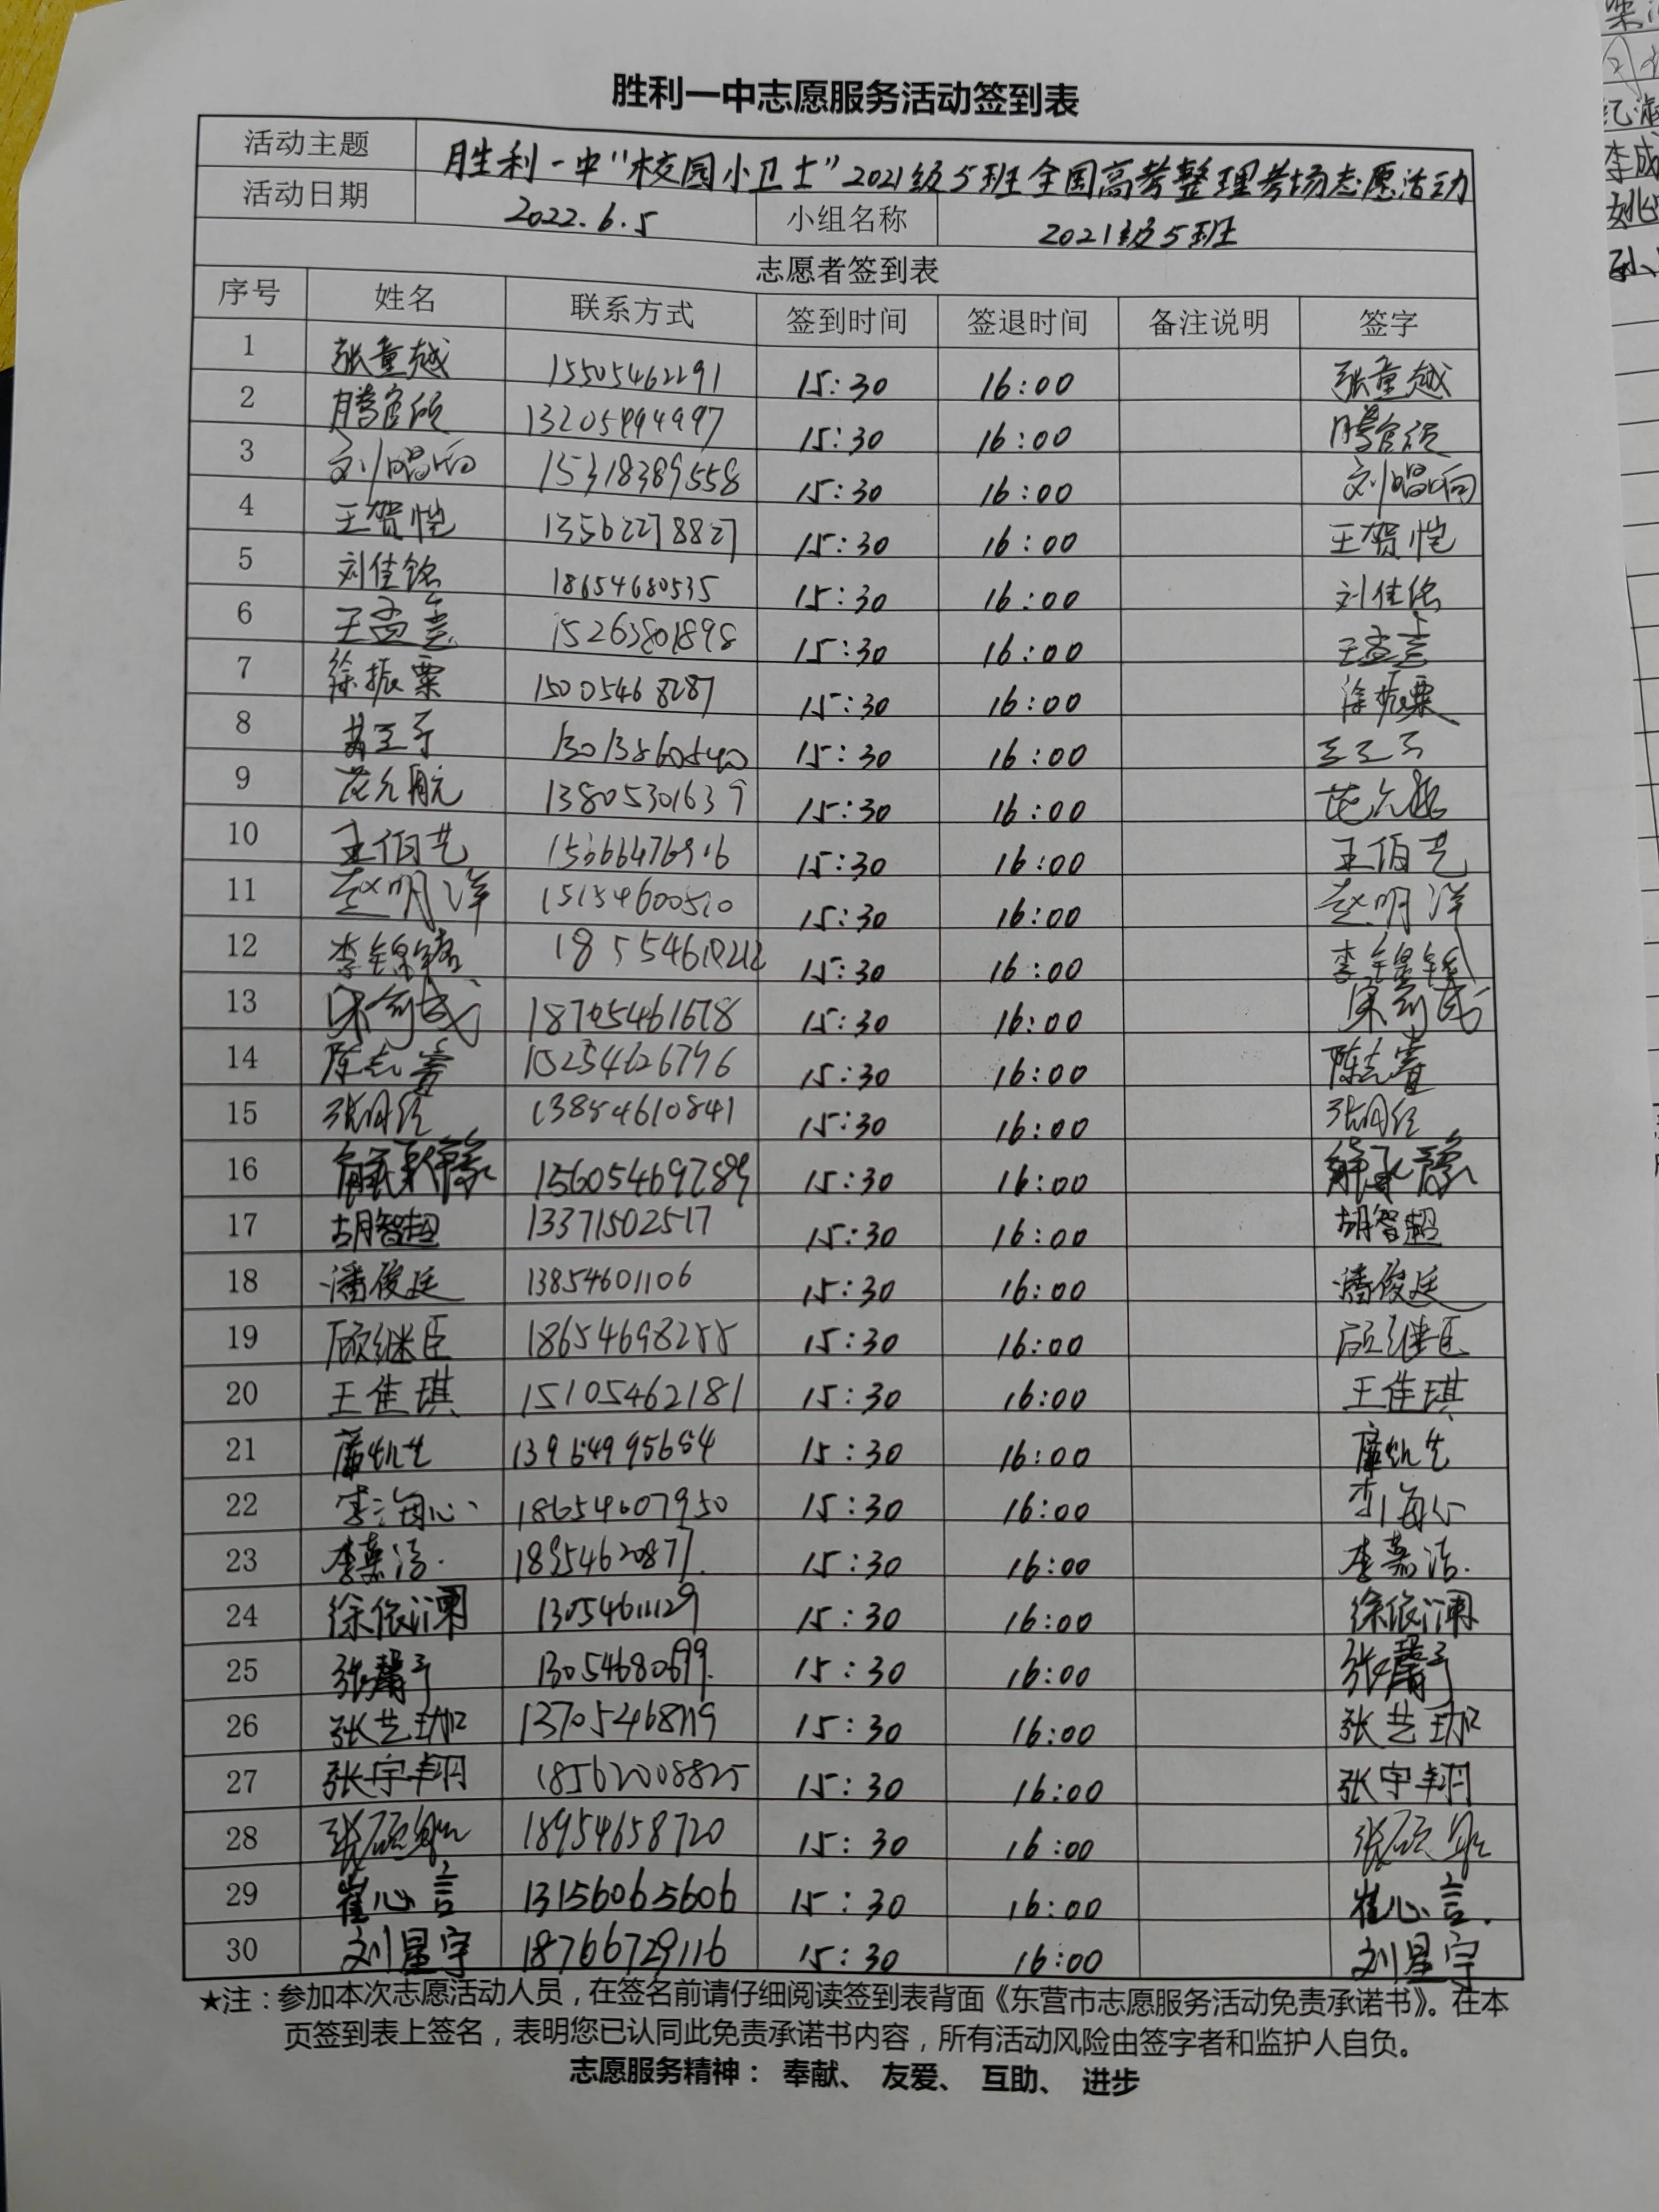 胜利一中志愿服务活动签到表
活动主题 胜利一中“校园小卫士”2021级5班全国高考整理考场志愿活动
活动日期 2022.6.5 小组名称 2021级5班
志愿者签到表
序号 姓名 联系方式 签到时间 签退时间 备注说明 签字
1 张童越 15505462291 15:30 16:00 张童越
2 13205494997 15:30 16:00
3 刘唱响 15318389558 15:30 16:00 刘唱响
4 王贺恺 13562278827 15:30 16:00 王贺恺
5 刘佳铭 18654680535 15:30 16:00 刘佳铭
6 15263801898 15:30 16:00
7 徐振粟 15005468287 15:30 16:00 徐振粟
8 15:30 16:00
9 13805301639 15:30 16:00
10 王伯艺 15:30 16:00 王伯艺
11 赵明洋 15154600510 15:30 16:00 赵明洋
12 15:30 16:00
13 18705461678 15:30 16:00
14 陈志睿 15254626796 15:30 16:00 陈志睿
15 13854610841 15:30 16:00
16 15605469789 15:30 16:00
17 胡智超 13371502517 15:30 16:00 胡智超
18 潘俊廷 13854601106 15:30 16:00 潘俊廷
19 顾继臣 18654698288 15:30 16:00 顾继臣
20 王佳琪 15105462181 15:30 16:00 王佳琪
21 13964995684 15:30 16:00
22 李海心 18654607950 15:30 16:00 李海心
23 李嘉洁. 18954620877. 15:30 16:00 李嘉洁.
24 徐依澜 13054611129 15:30 16:00 徐依澜
25 张馨予 13054680699. 15:30 16:00 张馨予
26 张艺珈 13705468119 15:30 16:00 张艺珈
27 张宇翔 18562008825 15:30 16:00 张宇翔
28 18954658720 15:30 16:00
29 崔心言 13156065606 15:30 16:00 崔心言.
30 刘星宇 18766729116 15:30 16:00 刘星宇
★注：参加本次志愿活动人员，在签名前请仔细阅读签到表背面《东营市志愿服务活动免责承诺书》。在本
页签到表上签名，表明您已认同此免责承诺书内容，所有活动风险由签字者和监护人自负。
志愿服务精神： 奉献、 友爱、 互助、 进步